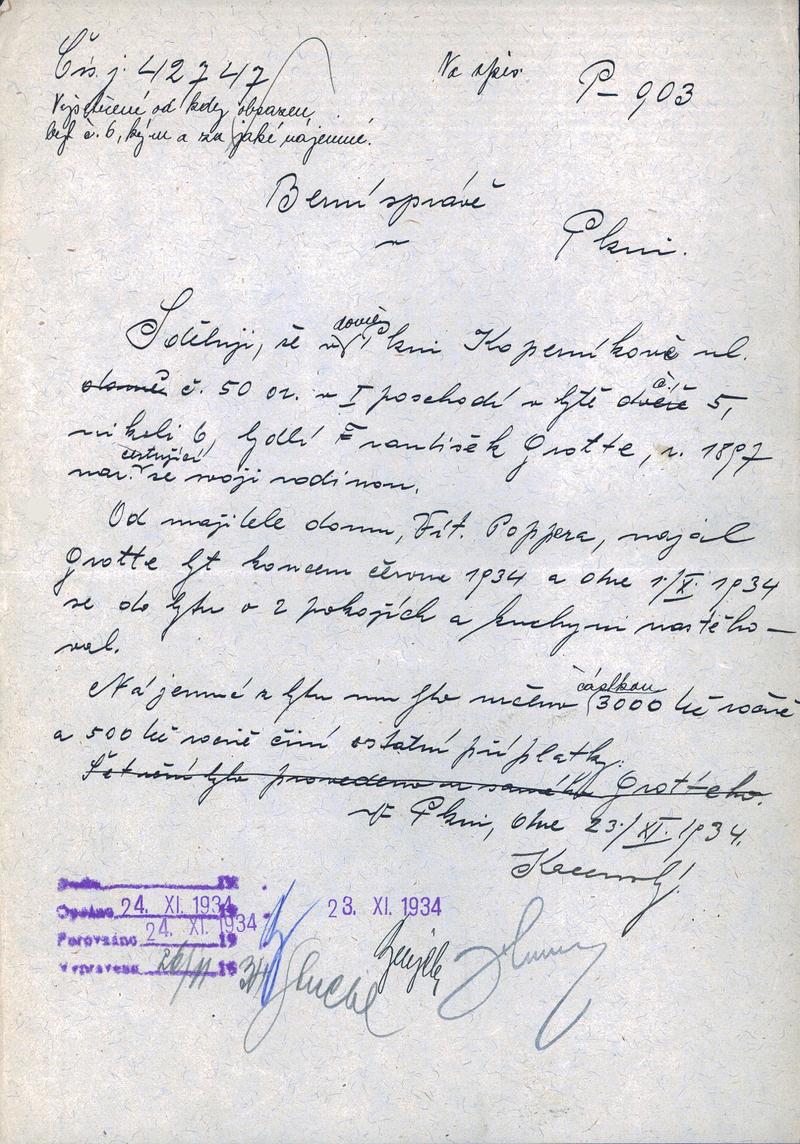 Čís. j. 42747
Na spis
P-903
Vyšetření od kdy obsazen
byt č. 6, kým a za jaké nájemné.
Berní správě
v
Plzni.
Sděluji, že v Plzni Koperníkově ul.
domě č. 50 or. v I poschodí v bytě dveře č. 5,
nikoli 6, bydlí František Grotte, r. 1897
nar. cestující se svojí rodinou.
Od majitele domu, Vít. Poppera, najal
Grotte byt koncem června 1934 a dne 1./X. 1934
se do bytu o 2 pokojích a kuchyni nastěho-
val.
Nájemné z bytu mu bylo určeno částkou 3000 Kč ročně
a 500 Kč ročně činí ostatní příplatky.
Šetření bylo provedeno u samého Grotteho.
V Plzni, dne 23./XI. 1934.
Došlo 19
Opsáno 24. XI. 1934
23. XI. 1934
Porovnáno 24. XI. 1934
Vypraveno 26/11 34